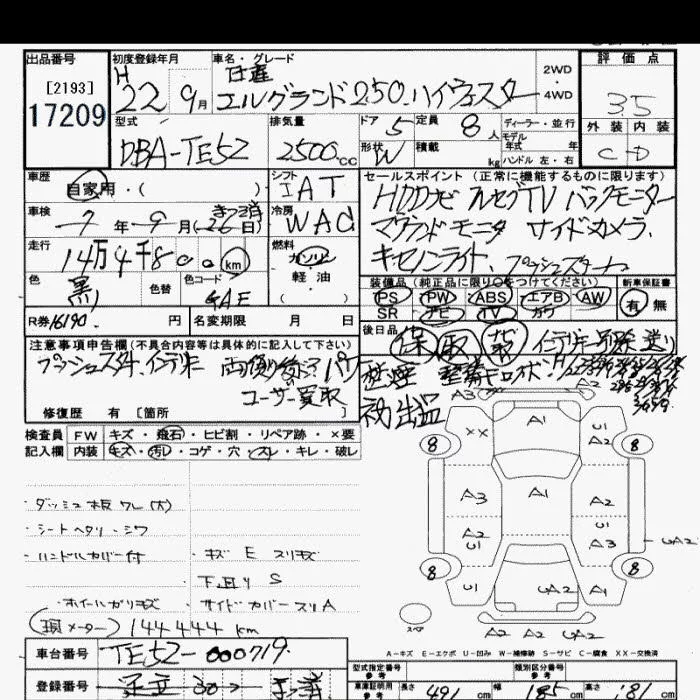 出品番号
[2193]
17209
初度登録年月
H
22 9月
車名・グレード
日産
エルグランド250.ハイウェスター
2WD
・
4WD
評価点
3.5
外装 内装
C D
型式
DBA-TE52
排気量
2500cc
ドア 5
定員 8人
形状 W
積載 kg
ディーラー・並行
モデル
年式 年
ハンドル 左・右
車歴
自家用・( )
シフト
IAT
車検
7年9月(26日)
冷房
WAC
走行
14万4千800km
燃料
ガソリン
軽・油
( )
色
黒
色替
色コード
GAE
R券16190. 円
名変期限 月 日
セールスポイント (正常に機能するものに限ります)
HDDナビ フルセグTV バックモニター
アラウンドモニタ サイドカメラ.
キセノンライト. プッシュスタート
装備品(純正品に限り○をつけてください)
PS PW ABS エアB AW
SR ナビ TV カワ
新車保証書
有 無
後日品
保 取 ナビ取
注意事項申告欄(不具合内容等は具体的に記入して下さい)
ユーザー買取
初出品
修復歴 有 [箇所
検査員
記入欄
FW キズ・飛石・ヒビ割・リペア跡・×要
内装 キズ・汚レ・コゲ・穴・スレ・キレ・破レ
・ダッシュ板ワレ(大)
・シートヘタリ・シワ
・ハンドルカバー付
・キズ E スリキズ
下廻り S
・ホイールガリキズ
・サイドカバースリA
(現メーター) 144444 km
A3
A2
A1
XX
U1
A2
8
8
A3
A1
A2
A2
U1
U1
A3
UA2
8
8
U1
UA2
A1
スペア
A2 A2 UA2
A-キズ E-エクボ U-凹み W-補修跡 S-サビ C-腐食 XX-交換済
車台番号
TE52-000719.
登録番号
足立
型式指定番号
参考
類別区分番号
参考
車庫証明用
参考
長さ 491 cm
幅 185 cm
高さ 181 cm